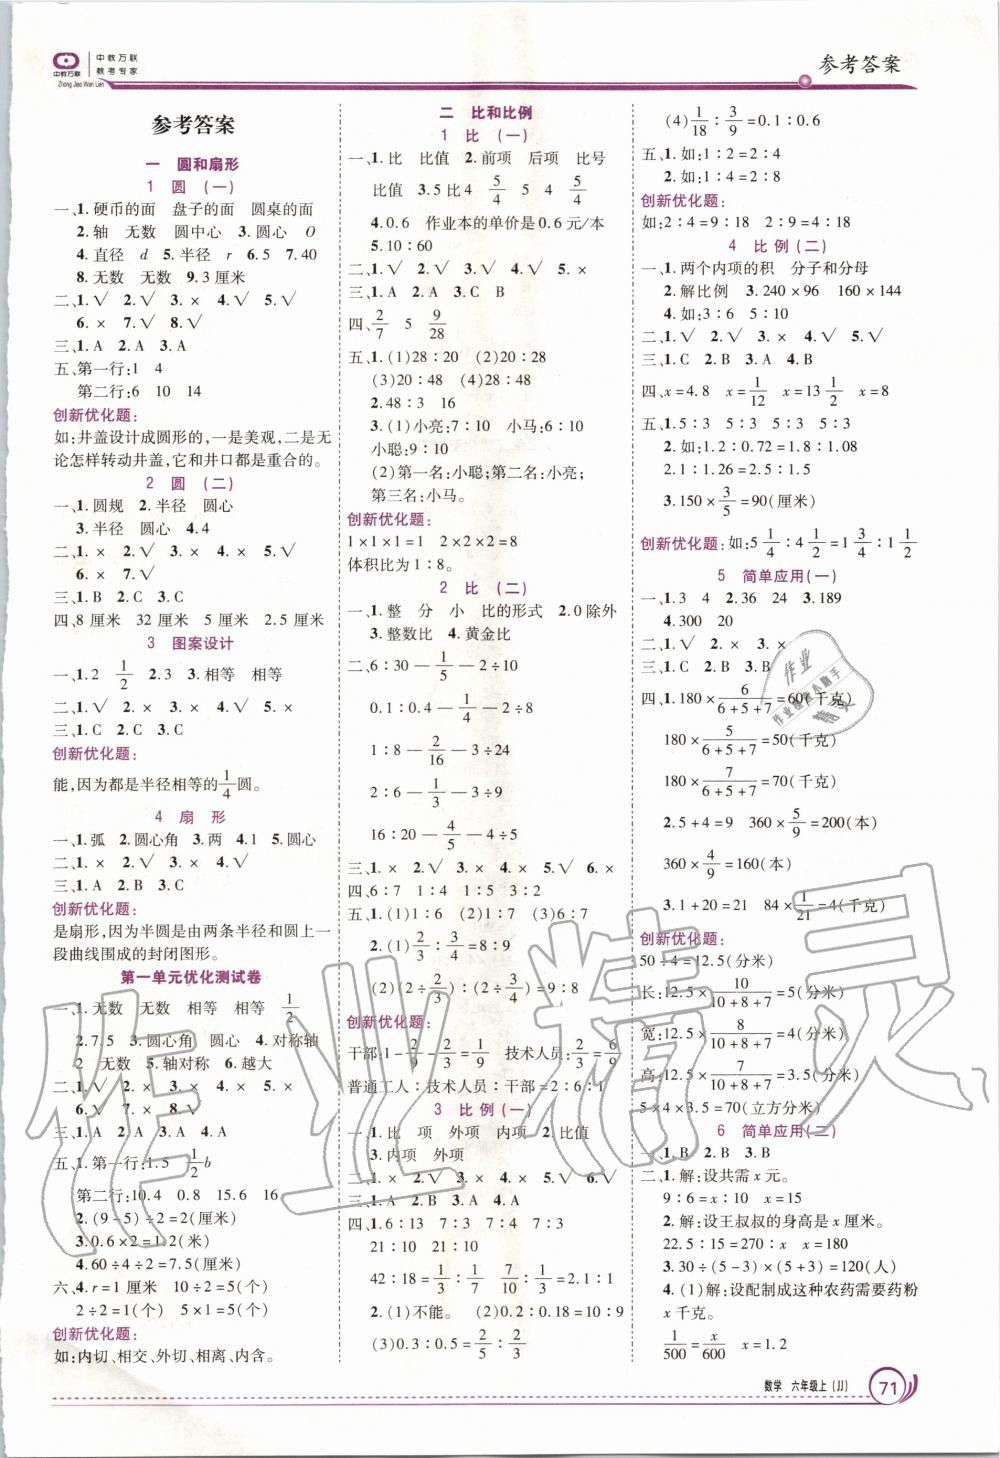 中教万联
教考专家
中教万联
Zhong Jiao Wan Lian
参考答案
参考答案
一 圆和扇形
1 圆 (一)
一、1.硬币的面 盘子的面 圆桌的面
2.轴 无数 圆中心 3.圆心 O
4.直径 d 5.半径 r 6.5 7.40
8.无数 无数 9.3厘米
二、1.√ 2.√ 3.× 4.√ 5.√
6.× 7.√ 8.√
三、1.A 2.A 3.A
五、第一行:1 4
第二行:6 10 14
创新优化题:
如:井盖设计成圆形的,一是美观,二是无
论怎样转动井盖,它和井口都是重合的。
2 圆 (二)
一、1.圆规 2.半径 圆心
3.半径 圆心 4.4
二、1.× 2.√ 3.× 4.× 5.√
6.× 7.√
三、1.B 2.C 3.C
四、8厘米 32厘米 5厘米 2.5厘米
3 图案设计
一、1.2 1/2 2.3 3.相等 相等
二、1.√ 2.× 3.× 4.√ 5.×
三、1.C 2.C 3.C
创新优化题:
能,因为都是半径相等的1/4圆。
4 扇 形
一、1.弧 2.圆心角 3.两 4.1 5.圆心
二、1.× 2.× 3.√ 4.× 5.√
三、1.A 2.B 3.C
创新优化题:
是扇形,因为半圆是由两条半径和圆上一
段曲线围成的封闭图形。
第一单元优化测试卷
一、1.无数 无数 相等 相等 1/2
2.7.5 3.圆心角 圆心 4.对称轴
2 无数 5.轴对称 6.越大
二、1.√ 2.× 3.× 4.× 5.×
6.√ 7.× 8.√
三、1.A 2.A 3.A 4.A
五、1.第一行:1.5 1/2b
第二行:10.4 0.8 15.6 16
2.(9-5)÷2=2(厘米)
3.0.6×2=1.2(米)
4.60÷4÷2=7.5(厘米)
六、4.r=1厘米 10÷2=5(个)
2÷2=1(个) 5×1=5(个)
创新优化题:
如:内切、相交、外切、相离、内含。
二 比和比例
1 比 (一)
一、1.比 比值 2.前项 后项 比号
比值 3.5比4 5/4 5 4 5/4
4.0.6 作业本的单价是0.6元/本
5.10:60
二、1.√ 2.√ 3.√ 4.√ 5.×
三、1.A 2.A 3.C B
四、2/7 5 9/28
五、1.(1)28:20 (2)20:28
(3)20:48 (4)28:48
2.48:3 16
3.(1)小亮:7:10 小马:6:10
小聪:9:10
(2)第一名:小聪;第二名:小亮;
第三名:小马。
创新优化题:
1×1×1=1 2×2×2=8
体积比为1:8。
2 比 (二)
一、1.整 分 小 比的形式 2.0除外
3.整数比 4.黄金比
二、6:30—1/5—2÷10
0.1:0.4—1/4—2÷8
1:8—2/16—3÷24
2:6—1/3—3÷9
16:20—4/5—4÷5
三、1.× 2.√ 3.× 4.× 5.√ 6.×
四、6:7 1:4 1:5 3:2
五、1.(1)1:6 (2)1:7 (3)6:7
2.(1)2/3:3/4=8:9
(2)(2÷2/3):(2÷3/4)=9:8
创新优化题:
干部:1-2/9-2/3=1/9 技术人员:2/3=6/9
普通工人:技术人员:干部=2:6:1
3 比例(一)
一、1.比 项 外项 内项 2.比值
3.内项 外项
二、1.× 2.√ 3.× 4.× 5.× 6.√
三、1.A 2.B 3.A 4.A
四、1.6:13 7:3 7:4 7:3
21:10 21:10
42:18=1/3:1/7 7/10:1/3=2.1:1
2.(1)不能。 (2)0.2:0.18=10:9
(3)0.3:0.5=2/5:2/3
(4)1/18:3/9=0.1:0.6
五、1.如:1:2=2:4
2.如:1:4=2:8
创新优化题:
如:2:4=9:18 2:9=4:18
4 比例(二)
一、1.两个内项的积 分子和分母
2.解比例 3.240×96 160×144
4.如:3:6 5:10
二、1.√ 2.√ 3.× 4.√ 5.√
三、1.C 2.B 3.A 4.B
四、x=4.8 x=1/12 x=13 1/2 x=8
五、1.5:3 5:3 5:3 5:3
2.1.2:0.72=1.8:1.08
2.1:1.26=2.5:1.5
3.150×3/5=90(厘米)
创新优化题:如:5 1/4:4 1/2=1 3/4:1 1/2
5 简单应用(一)
一、1.3 4 2.36 24 3.189
4.300 20
二、1.√ 2.× 3.×
三、1.C 2.B 3.B
四、1.180×6/(6+5+7)=60(千克)
180×5/(6+5+7)=50(千克)
180×7/(6+5+7)=70(千克)
2.5+4=9 360×5/9=200(本)
360×4/9=160(本)
3.1+20=21 84×1/21=4(千克)
创新优化题:
50÷4=12.5(分米)
长:12.5×10/(10+8+7)=5(分米)
宽:12.5×8/(10+8+7)=4(分米)
高:12.5×7/(10+8+7)=3.5(分米)
5×4×3.5=70(立方分米)
6 简单应用(二)
一、1.B 2.B
二、1.解:设共需x元。
9:6=x:10 x=15
2.解:设王叔叔的身高是x厘米。
22.5:15=270:x x=180
3.30÷(5-3)×(5+3)=120(人)
4.(1)解:设配制成这种农药需要药粉
x千克。
1/500=x/600 x=1.2
数学 六年级上(JJ) 71
作业精灵